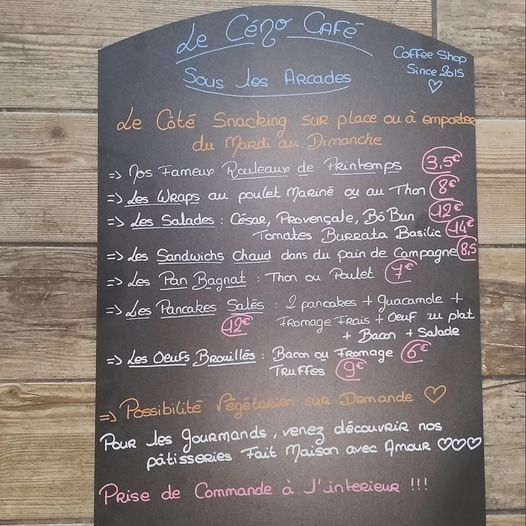 Le Céno Café
Coffee Shop
Since 2015
Sous les Arcades
Le Côté Snacking sur place ou à emporter
du Mardi au Dimanche
=> Nos Fameux Rouleaux de Printemps 3,5€
=> Les Wraps au poulet Mariné ou au Thon 8€
=> Les Salades : César, Provençale, Bô Bun 12€
Tomates Burrata Basilic 14€
=> Les Sandwichs Chaud dans du pain de Campagne 8,5
=> Les Pan Bagnat : Thon ou Poulet 7€
=> Les Pancakes Salés : 2 pancakes + guacamole +
12€ Fromage Frais + Oeuf au plat
+ Bacon + Salade
=> Les Oeufs Brouillés : Bacon ou Fromage 6€
Truffes 9€
=> Possibilité Végétarien sur Demande
Pour les gourmands, venez découvrir nos
pâtisseries Fait Maison avec Amour
Prise de Commande à l'interieur !!!